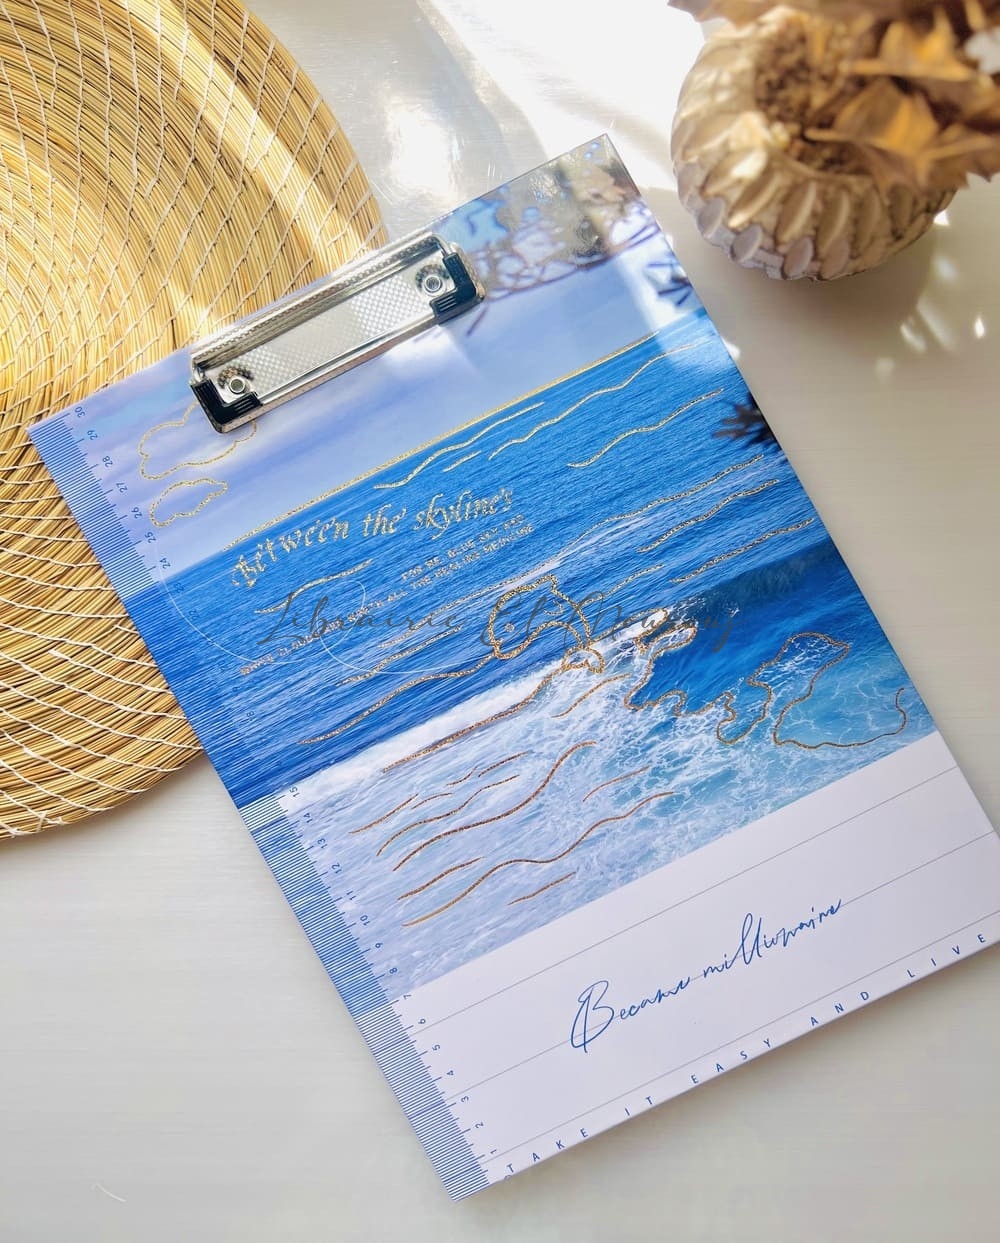 30
29
28
27
26
25
24
Between the skyline's
FOR ME, BLUE SKY AND
THE HEALING MEDICINE
Librairie El Mouhouj
15
14
13
12
11
10
9
8
7
6
5
4
3
2
1
Became millionaire
TAKE IT EASY AND LIVE